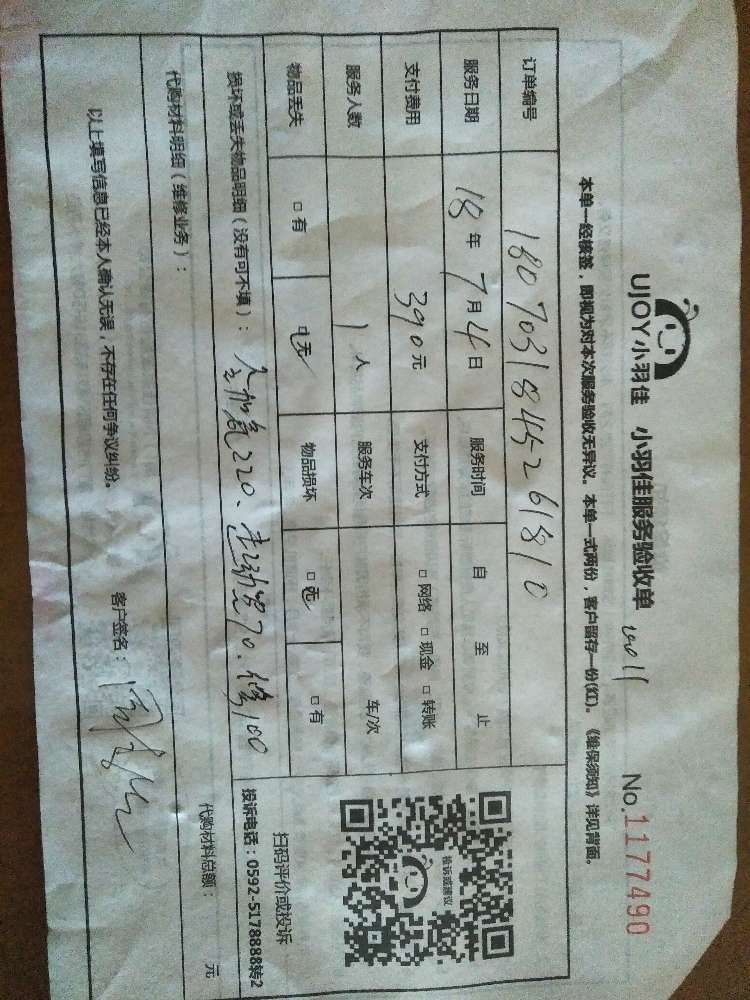 UJOY小羽佳 小羽佳服务验收单 No.1177490
本单一经核签，即视为对本次服务验收无异议。本单一式两份，客户留存一份(红)。《维保须知》详见背面。
订单编号 180703184526181０
服务日期 18年7月4日 服务时间 自 至 止
支付费用 390元 支付方式 □网络 □现金 □转账
服务人数 1人 服务车次 车/次
物品丢失 □有 □无 物品损坏 □无 □有
投诉或建议
扫码评价或投诉
投诉电话：0592-5178888转2
损坏或丢失物品明细（没有可不填）： 全加氟220、起动器70.修100
代购材料明细（维修业务）： 代购材料总额： 元
以上填写信息已经本人确认无误，不存在任何争议纠纷。 客户签名：